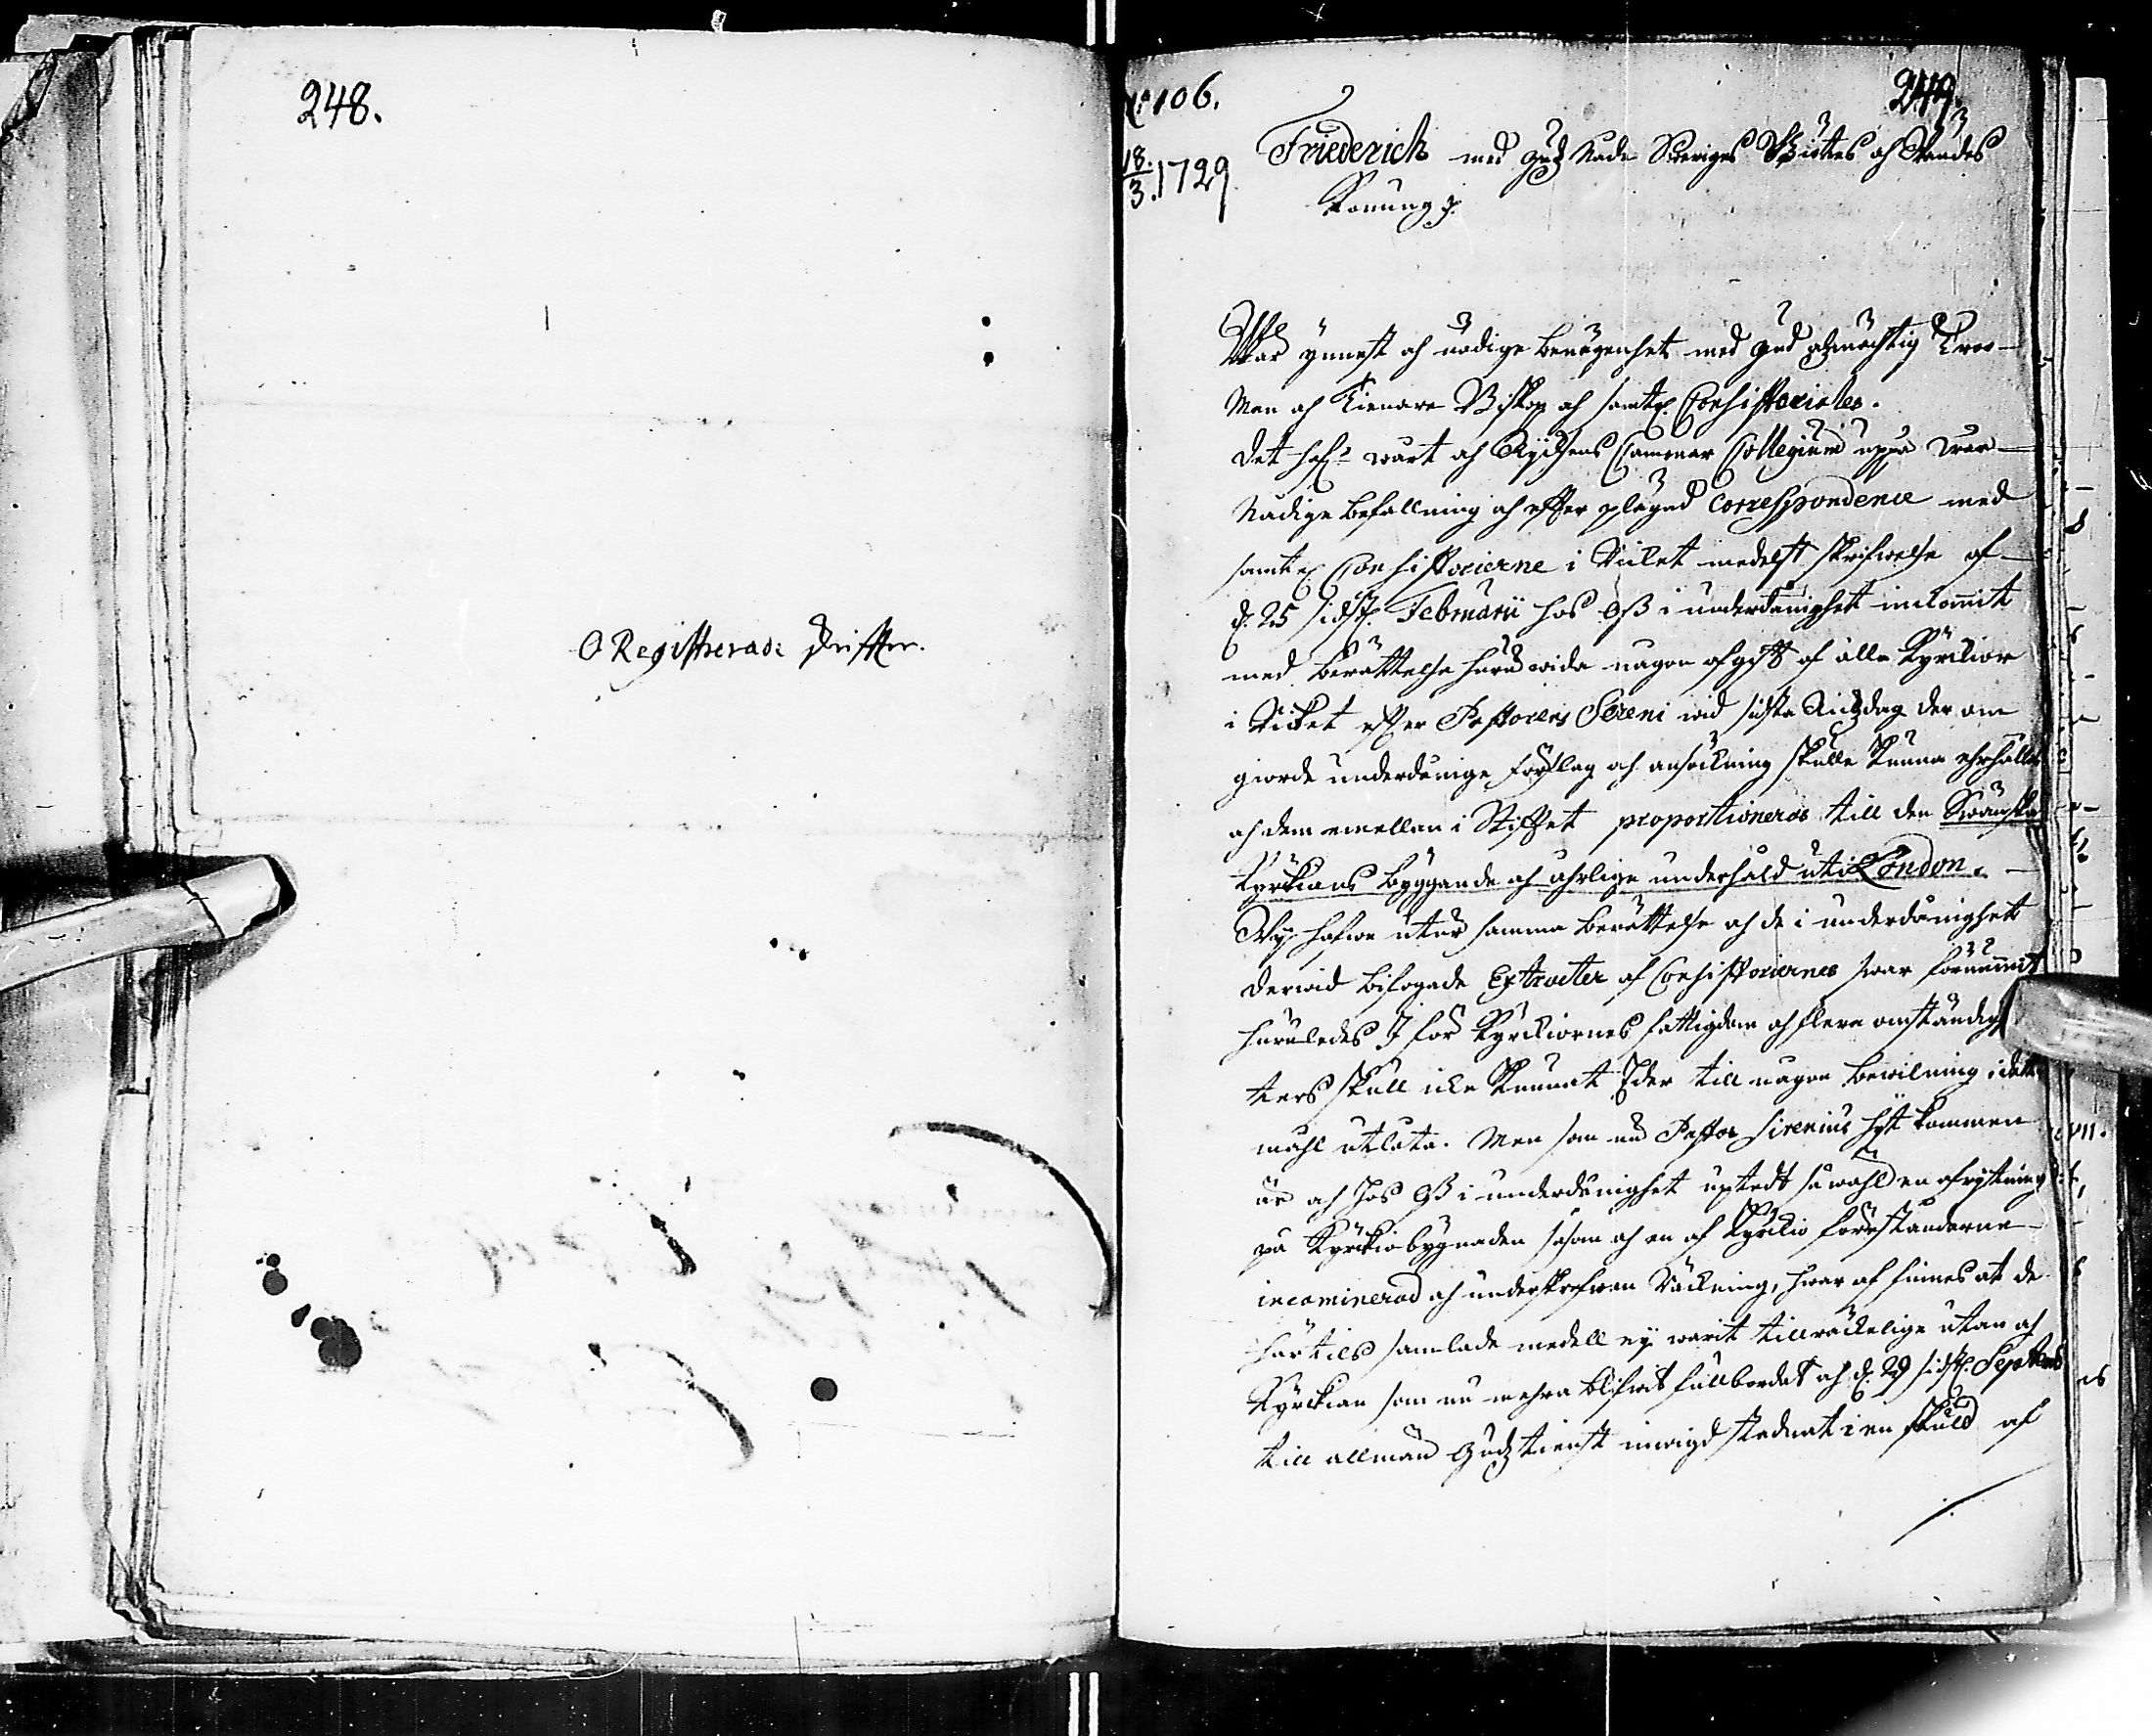 248.
O Registrerade skrifter.
N:o 106.
249.
18/3. 1729
Friederich med Gudz Nåde Sweriges Giötes och Wendes
Konung p.
Wår ynnest och nådige benägenhet med Gud alzmächtig Troo-
Men och Tienare Biskop och samtel. Consistoriales.
Det hafr. wårt och Rijksens Cammar Collegium uppå wår
Nådige befallning och effter plägad Correspondence med
samtel. Consistorierne i Riket medelst skrifwelse af
d. 25 sidstl. Februarii hos Oß i underdånighet inkommit
med berättelse huruwida någon afgift af alla Kyrkior
i Riket efter Pastorens Sereni wid sidste Riksdag der om
giorde underdånige förslag och ansökning skulle kunna erhållas
och dem emellan i Stiftet proportioneras till den Swänska
Kyrkians byggande och åhrlige underhåld uti London.
Wij hafwe utur samma berättelse och de i underdånighet
derwid bifogade Extracter af Consistoriernes swar förnummit
huruledes I för Kyrkiornes fattigdom och flere omständig
ters skull icke kunnat Eder till någon bewilning i detta
måhl utlåta. Men som nu Pastor Sirenius hijt kommen
är och hos Oß i underdånighet uptedt så wähl en afrijtning
på Kyrkiobygnaden såsom och en af Kyrkio föreståndarne
incaminerad och underskrefwen Räkning, hwar af finnes at de
härtils samlade medell ej warit tillräckelige utan och
Kyrkian som nu mehra blifwit fullbordat och d. 29 sidstl. Septemb
till allmän Gudz tienst inwigd stadnat i en skuld af